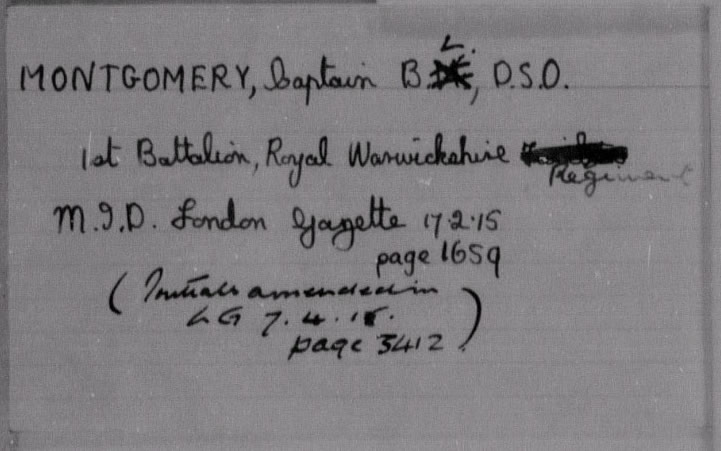 MONTGOMERY, Captain B.L., D.S.O.
1st Battalion, Royal Warwickshire Regiment
M.I.D. London Gazette 17.2.15
page 1659
(Initials amended in
LG 7.4.15.
page 3412)